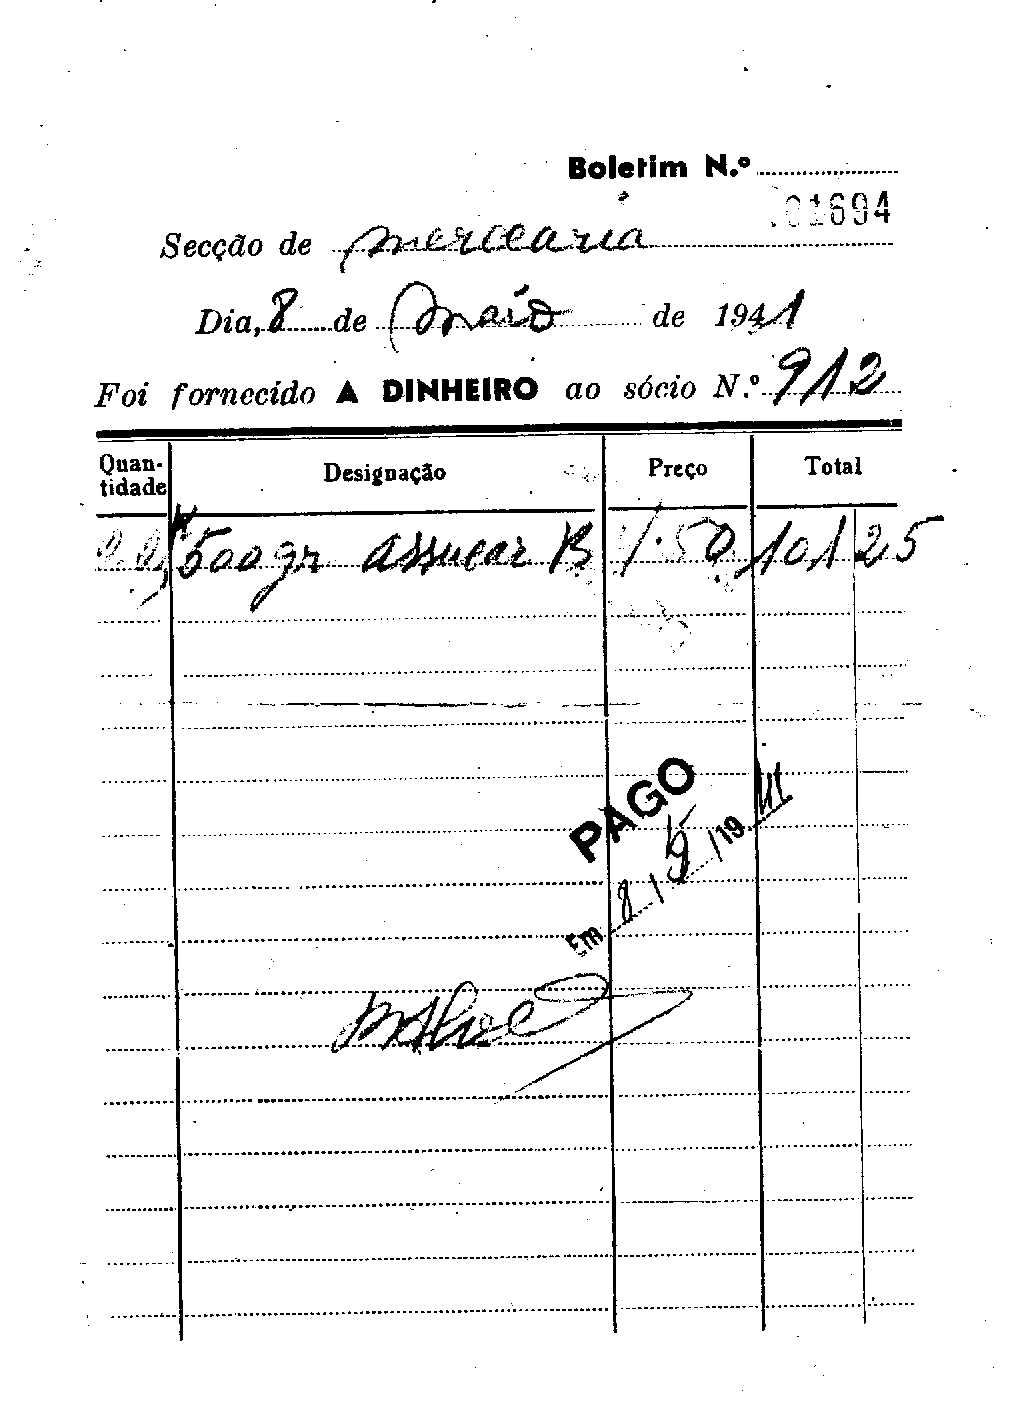 Boletim N.º
01694
Secção de mercearia
Dia, 8 de Maio de 1941
Foi fornecido A DINHEIRO ao sócio N.º 912
Quan-
tidade Designação Preço Total
500 gr assucar B 1.50 101 25
PAGO
Em 8 / 5 / 19 41